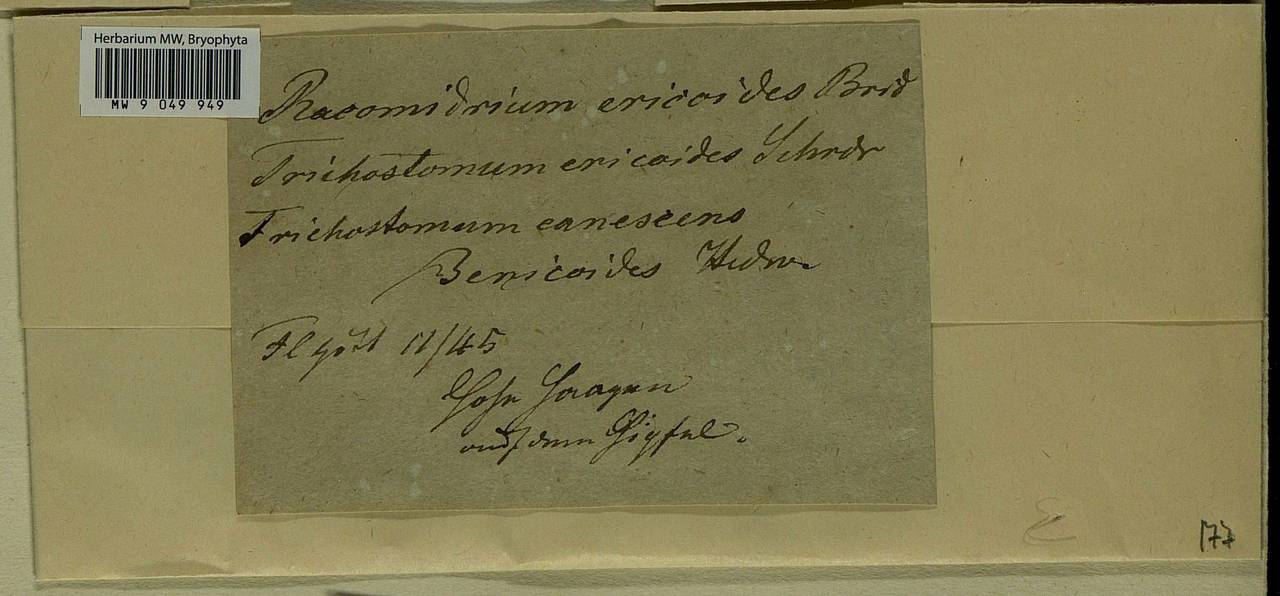 Herbarium MW, Bryophyta
MW 9 049 949
Racomidrium ericoides Brid
Trichostomum ericoides Schrdr
Trichostomum canescens
B ericoides Hedw.
Fl gött 11/45
Hohe Haagen
auf dem Gipfel.
177